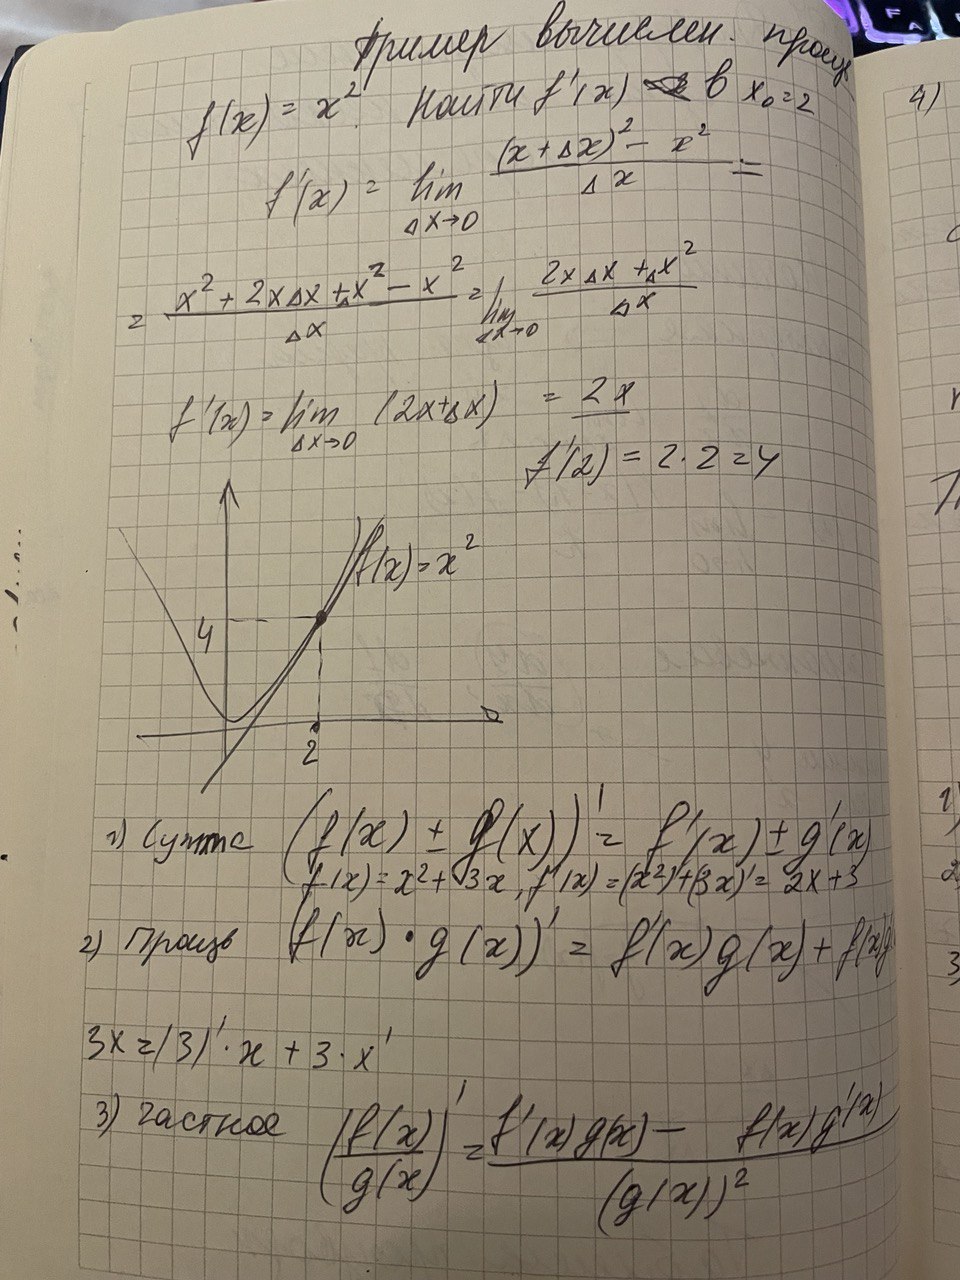 Пример вычислен. произв
f(x) = x². Найти f'(x) в x₀=2
f'(x) = lim Δx→0 ((x+Δx)² - x²)/Δx =
= (x² + 2xΔx + Δx² - x²)/Δx = lim Δx→0 (2xΔx + Δx²)/Δx
f'(x) = lim Δx→0 (2x+Δx) = 2x
f'(2) = 2·2 = 4
f(x) = x²
4
2
1) Сумма (f(x) ± g(x))' = f'(x) ± g'(x)
f(x) = x² + 3x, f'(x) = (x²)'+(3x)' = 2x+3
2) Произв (f(x) · g(x))' = f'(x)g(x) + f(x)g'
3x = (3)'·x + 3·x'
3) частное (f(x)/g(x))' = (f'(x)g(x) - f(x)g'(x))/(g(x))²
4)
1)
2
3